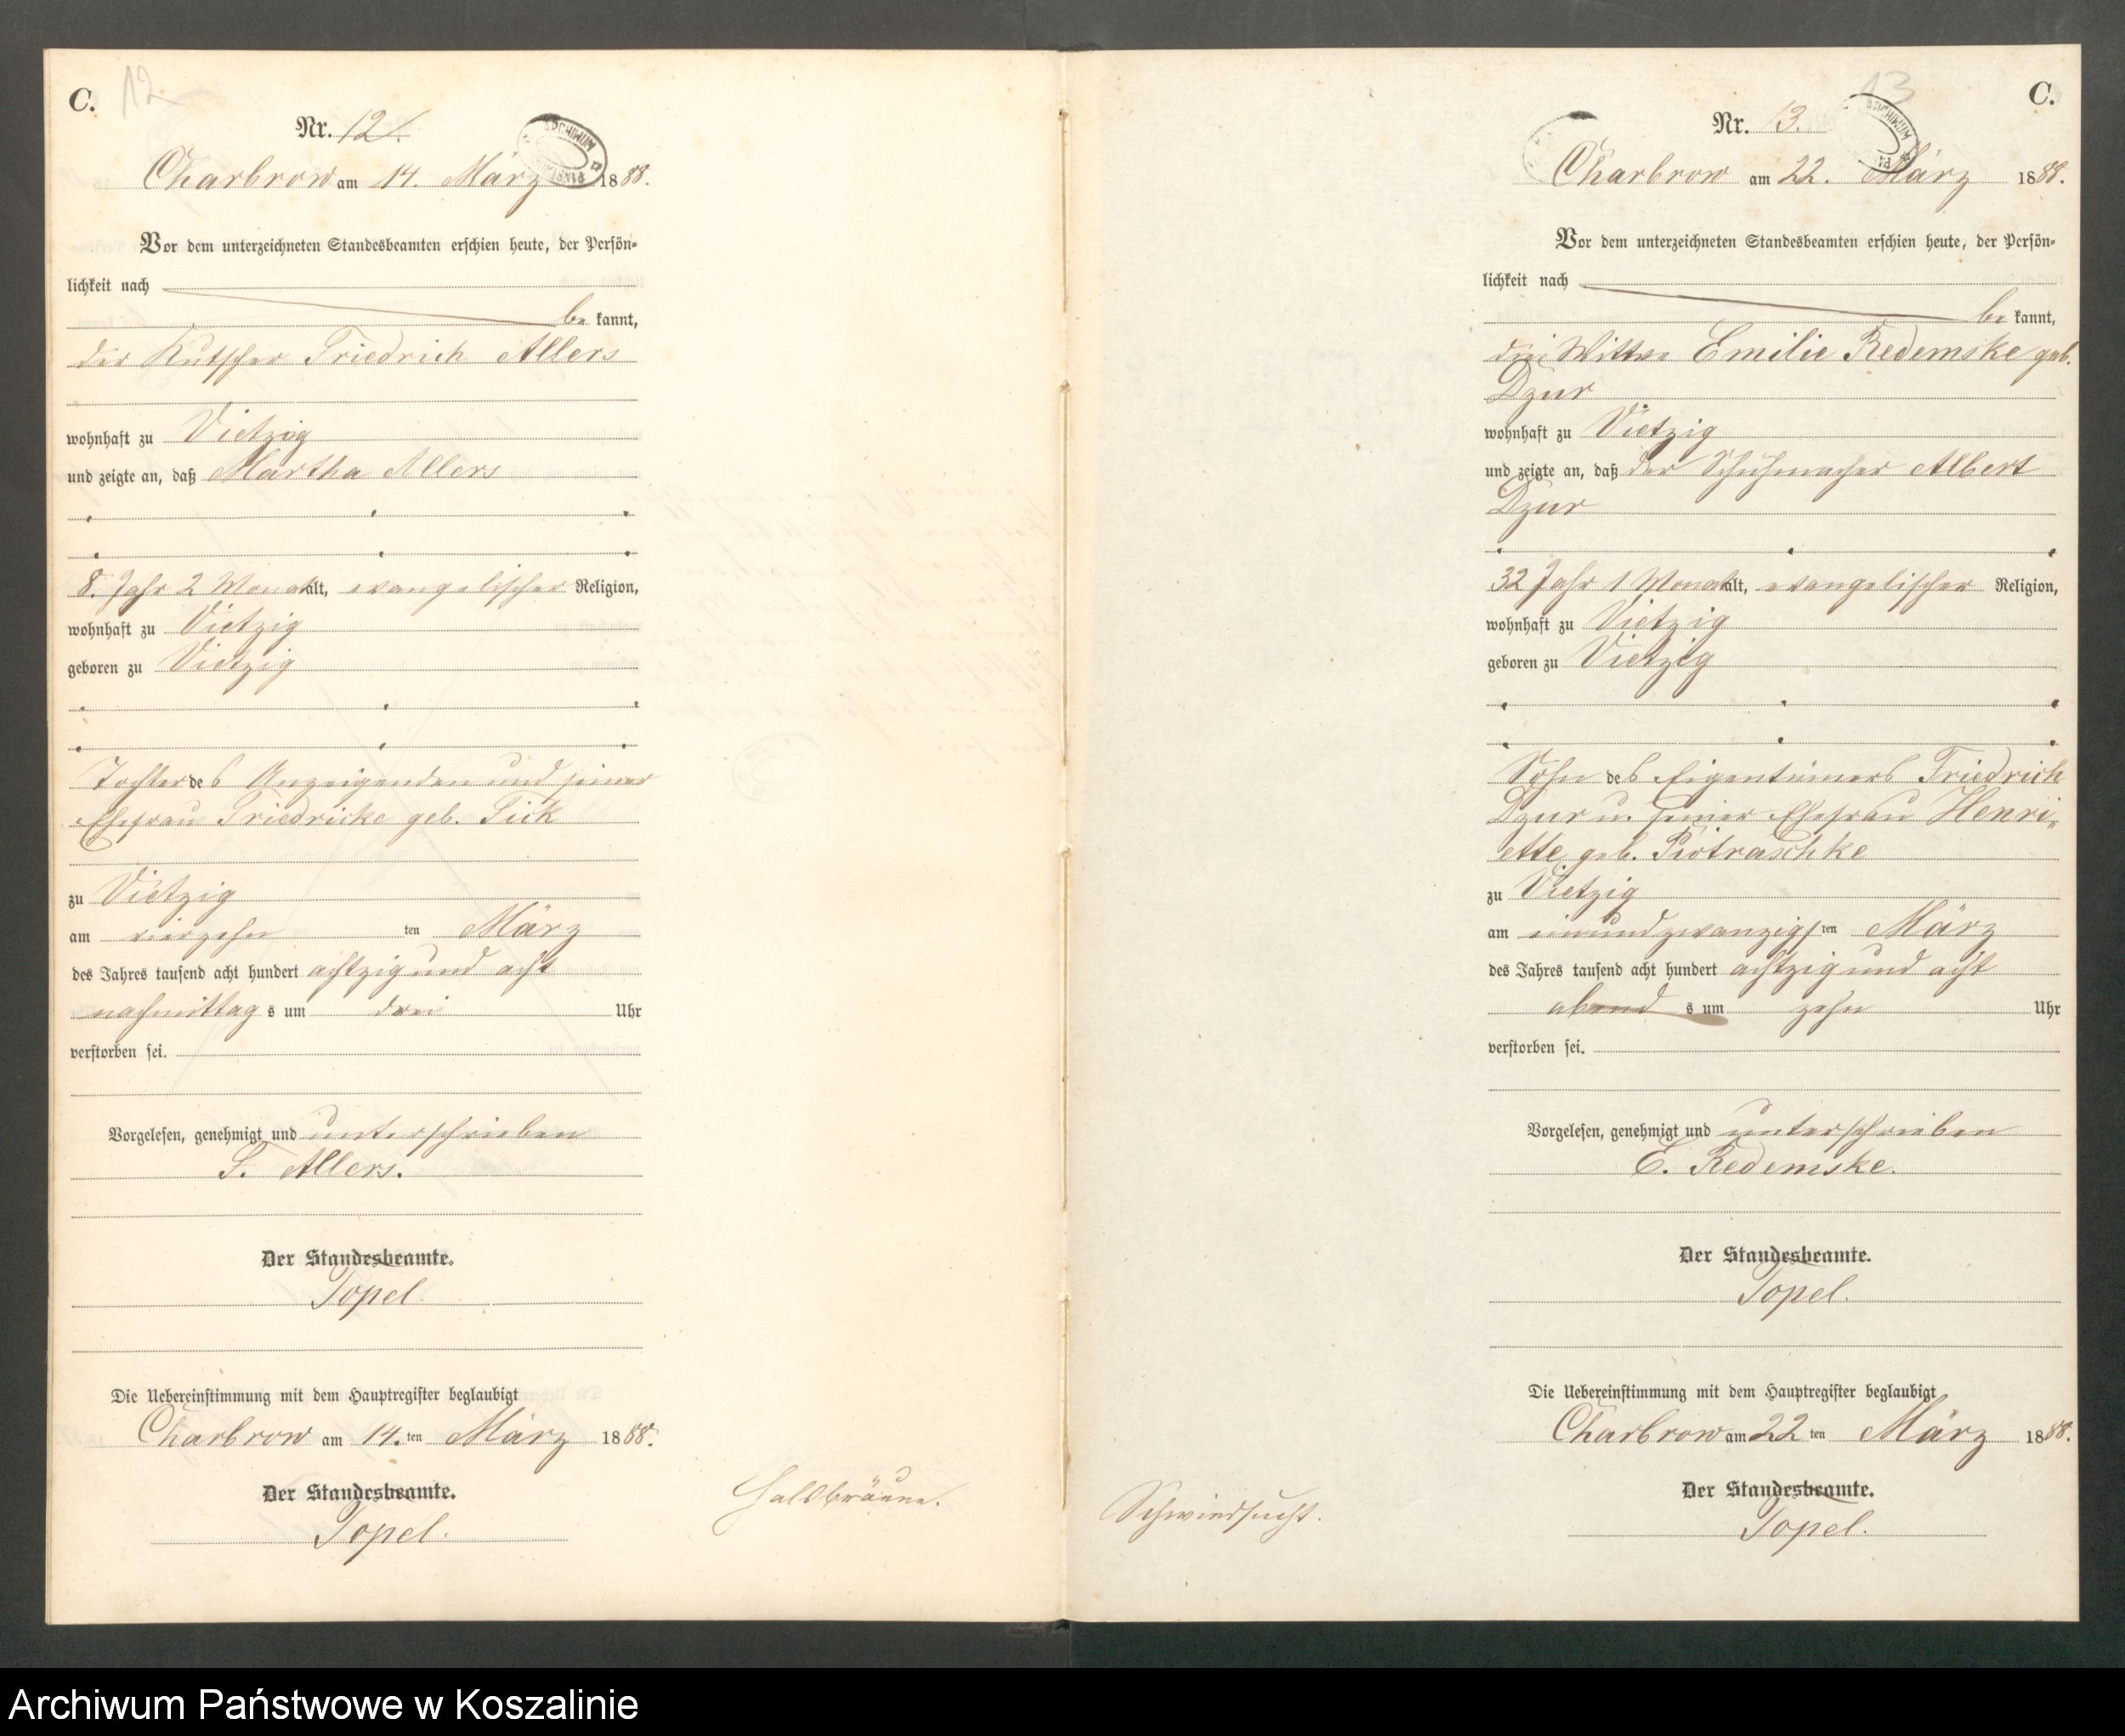 C.
12
Nr. 12.
ARCHIWUM
Charbrow am 14. März 1888.
Vor dem unterzeichneten Standesbeamten erschien heute, der Persön-
lichkeit nach
be kannt,
der Kutscher Friedrich Allers
wohnhaft zu Vietzig
und zeigte an, daß Martha Allers
8. Jahr 2 Monat alt, evangelischer Religion,
wohnhaft zu Vietzig
geboren zu Vietzig
Tochter des Anzeigenden und seiner
Ehefrau Friedricke geb. Fick
zu Vietzig
am vierzehn ten März
des Jahres tausend acht hundert achtzig und acht
nachmittag s um drei Uhr
verstorben sei.
Vorgelesen, genehmigt und unterschrieben
F. Allers.
Der Standesbeamte.
Topel.
Die Uebereinstimmung mit dem Hauptregister beglaubigt
Charbrow am 14. ten März 1888.
Der Standesbeamte.
Topel.
Halsbräune.
13
C.
Nr. 13.
ARCHIWUM
Charbrow am 22. März 1888.
Vor dem unterzeichneten Standesbeamten erschien heute, der Persön-
lichkeit nach
be kannt,
die Wittwe Emilie Redemske geb.
Dzur
wohnhaft zu Vietzig
und zeigte an, daß der Schuhmacher Albert
Dzur
32 Jahr 1 Monat alt, evangelischer Religion,
wohnhaft zu Vietzig
geboren zu Vietzig
Sohn des Eigentümers Friedrich
Dzur u. seiner Ehefrau Henri„
ette geb. Piotraschke
zu Vietzig
am einundzwanzigsten März
des Jahres tausend acht hundert achtzig und acht
abend s um zehn Uhr
verstorben sei.
Vorgelesen, genehmigt und unterschrieben
E. Redemske.
Der Standesbeamte.
Topel.
Die Uebereinstimmung mit dem Hauptregister beglaubigt
Charbrow am 22 ten März 1888.
Der Standesbeamte.
Topel.
Schwindsucht.
Archiwum Państwowe w Koszalinie